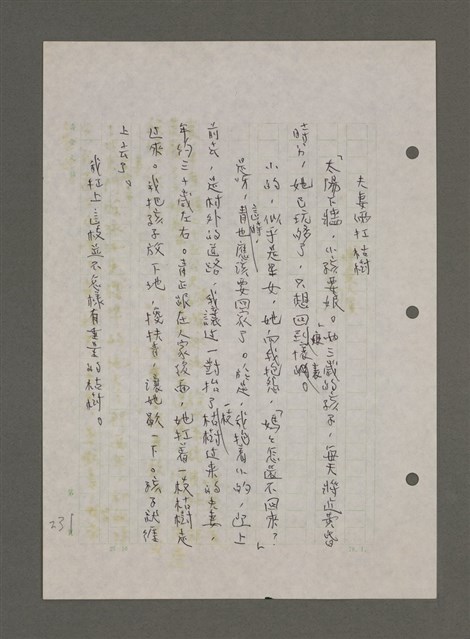 夫妻兩扛枯樹
「太陽下牆，小孩要娘。」她三歲的孩子，每天將近黃昏
時分，她已玩夠了，只想回到懷裏。
小的，似乎是孕女，她向我抱怨，「媽媽怎還不回來？」
是呀，青也應該要回家了。於是，我抱着小的，迎上
前去，是村外的道路，我讓過一對抬了一枝枯樹過來的夫妻，
年約三十歲左右。青正跟在人家後面，她扛着一枝枯樹走
過來。我把孩子放下地，接扶青，讓她歇一下。孩子就纏
上去了。
我扛上這枝並不怎樣有重量的枯樹。
231